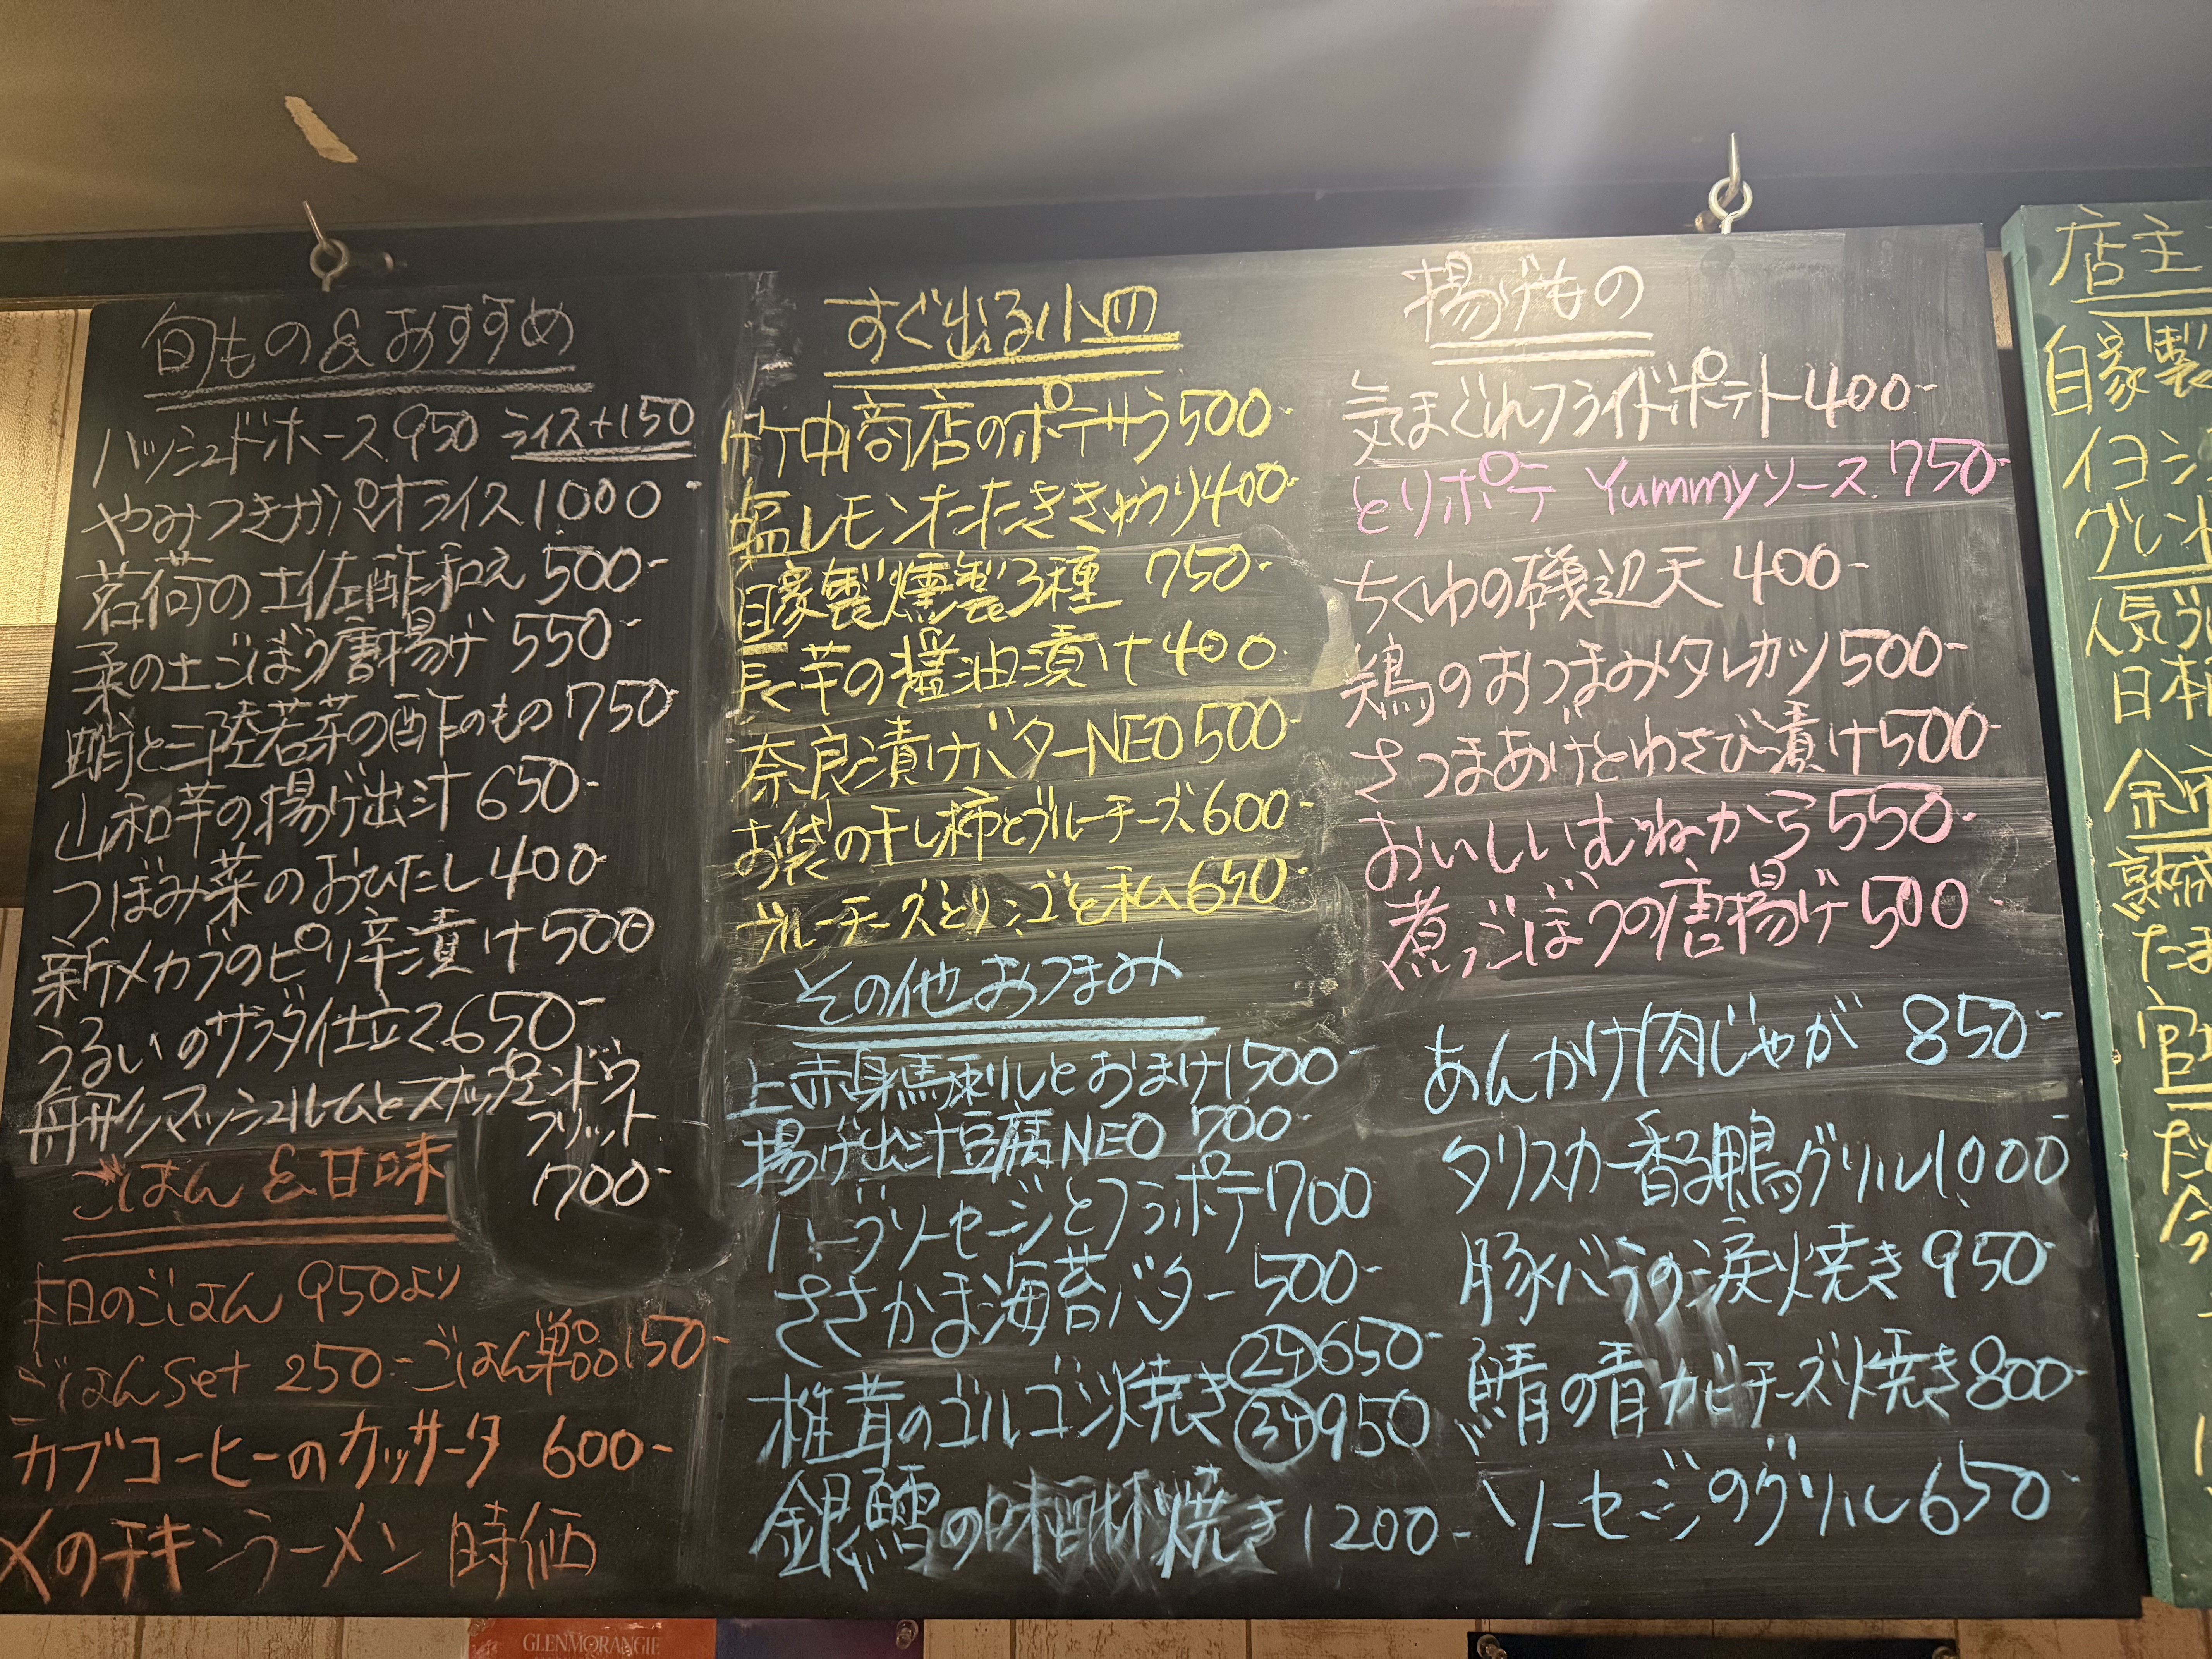 旬もの&おすすめ
ハッシュドホース 950 ライス+150
やみつきガパオライス 1000-
茗荷の土佐酢和え 500-
柔の土ごぼう唐揚げ 550-
蛸と三陸若芽の酢のもの 750
山和芋の揚げ出汁 650-
つぼみ菜のおひたし 400
新メカブのピリ辛漬け 500
うるいのサラダ仕立て 650-
舟形マッシュルームとスナップエンドウ
フリット
700-
ごはん&甘味
本日のごはん 950より
ごはんset 250- ごはん単品 150-
カブコーヒーのカッサータ 600-
〆のチキンラーメン 時価
すぐ出る小皿
竹中商店のポテサラ 500-
塩レモンたたききゅうり 400-
自家製燻製3種 750-
長芋の醤油漬け 400
奈良漬けバターNEO 500-
お袋の干し柿とブルーチーズ 600-
ブルーチーズとリンゴと私 650-
その他おつまみ
上赤身馬刺しとおまけ 1500-
揚げ出汁豆腐NEO 700-
ハーブソーセージとフラポテ 700
ささかま海苔バター 500-
椎茸のゴルゴンゾ焼き 2ケ 650-
3ケ 950
銀鱈の味醂焼き 1200-
揚げもの
気まぐれフライドポテト 400-
とりポテ Yummyソース 750-
ちくわの磯辺天 400-
鶏のおつまみタレカツ 500-
さつまあげとわさび漬け 500-
おいしいむねから 550-
煮ごぼうの唐揚げ 500-
あんかけ肉じゃが 850-
タリスカー香る鴨グリル 1000-
豚バラの涙焼き 950-
鯖の青カビチーズ焼き 800-
ソーセージのグリル 650-
店主
自家製
イヨシ
グレ
人気
日本
余市
熟成
たま
官
だ
今
GLENMORANGIE